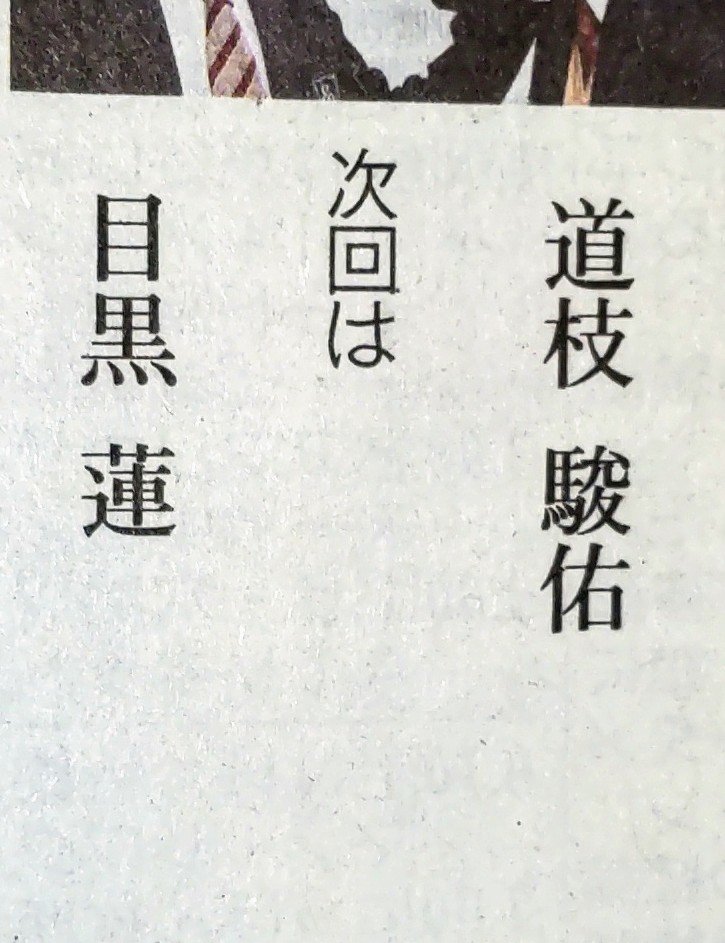 道枝 駿佑
次回は
目黒 蓮